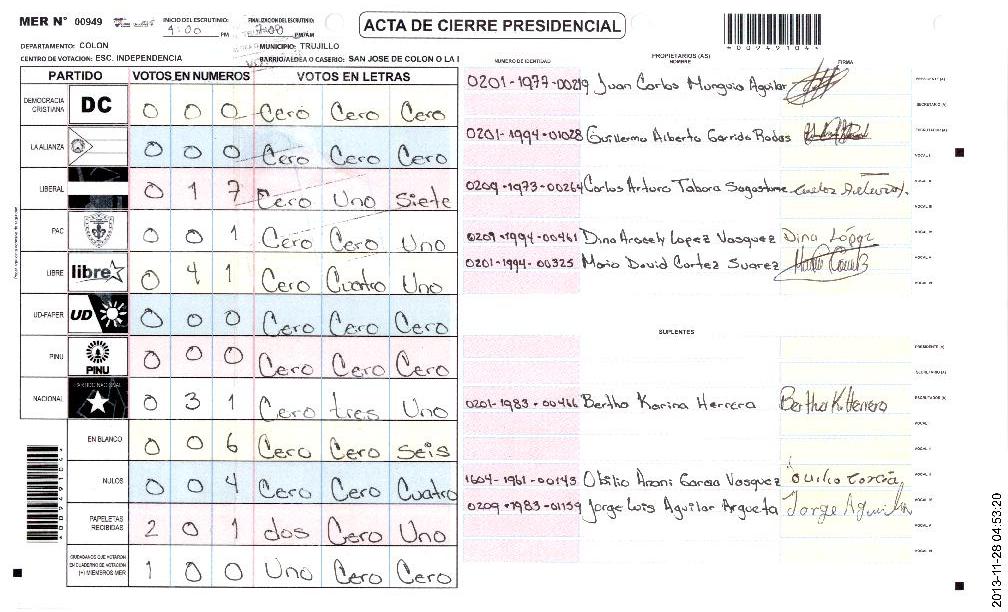 MER N° 00949
INICIO DEL ESCRUTINIO: 4:00 PM
FINALIZACION DEL ESCRUTINIO: 7:00 PM/AM
ACTA DE CIERRE PRESIDENCIAL
DEPARTAMENTO: COLON
MUNICIPIO: TRUJILLO
CENTRO DE VOTACION: ESC. INDEPENDENCIA
BARRIO/ALDEA O CASERIO: SAN JOSE DE COLON O LA I
PARTIDO VOTOS EN NUMEROS VOTOS EN LETRAS
DEMOCRACIA CRISTIANA DC 0 0 0 Cero Cero Cero
LA ALIANZA 0 0 0 Cero Cero Cero
LIBERAL 0 1 7 Cero Uno Siete
PAC 0 0 1 Cero Cero Uno
LIBRE libre 0 4 1 Cero Cuatro Uno
UD-FAPER UD 0 0 0 Cero Cero Cero
PINU PINU 0 0 0 Cero Cero Cero
NACIONAL PARTIDO NACIONAL 0 3 1 Cero tres Uno
EN BLANCO 0 0 6 Cero Cero Seis
NULOS 0 0 4 Cero Cero Cuatro
PAPELETAS RECIBIDAS 2 0 1 dos Cero Uno
CIUDADANOS QUE VOTARON EN CUADERNO DE VOTACION (+) MIEMBROS MER 1 0 0 Uno Cero Cero
PROPIETARIOS (AS)
NUMERO DE IDENTIDAD NOMBRE FIRMA
0201-1977-00219 Juan Carlos Munguia Aguilar
0201-1994-01028 Guillermo Alberto Garrido Rodas
0209-1973-00264 Carlos Arturo Tabora Sagastume
0209-1994-00461 Dina Aracely Lopez Vasquez Dina López
0201-1994-00325 Mario David Cortez Suarez
SUPLENTES
0201-1983-00466 Bertha Karina Herrera Bertha K. Herrera
1604-1961-00143 Obilio Anani Garcia Vasquez
0209-1983-01159 Jorge Luis Aguilar Argueta Jorge Aguilar
2013-11-28 04:53:20